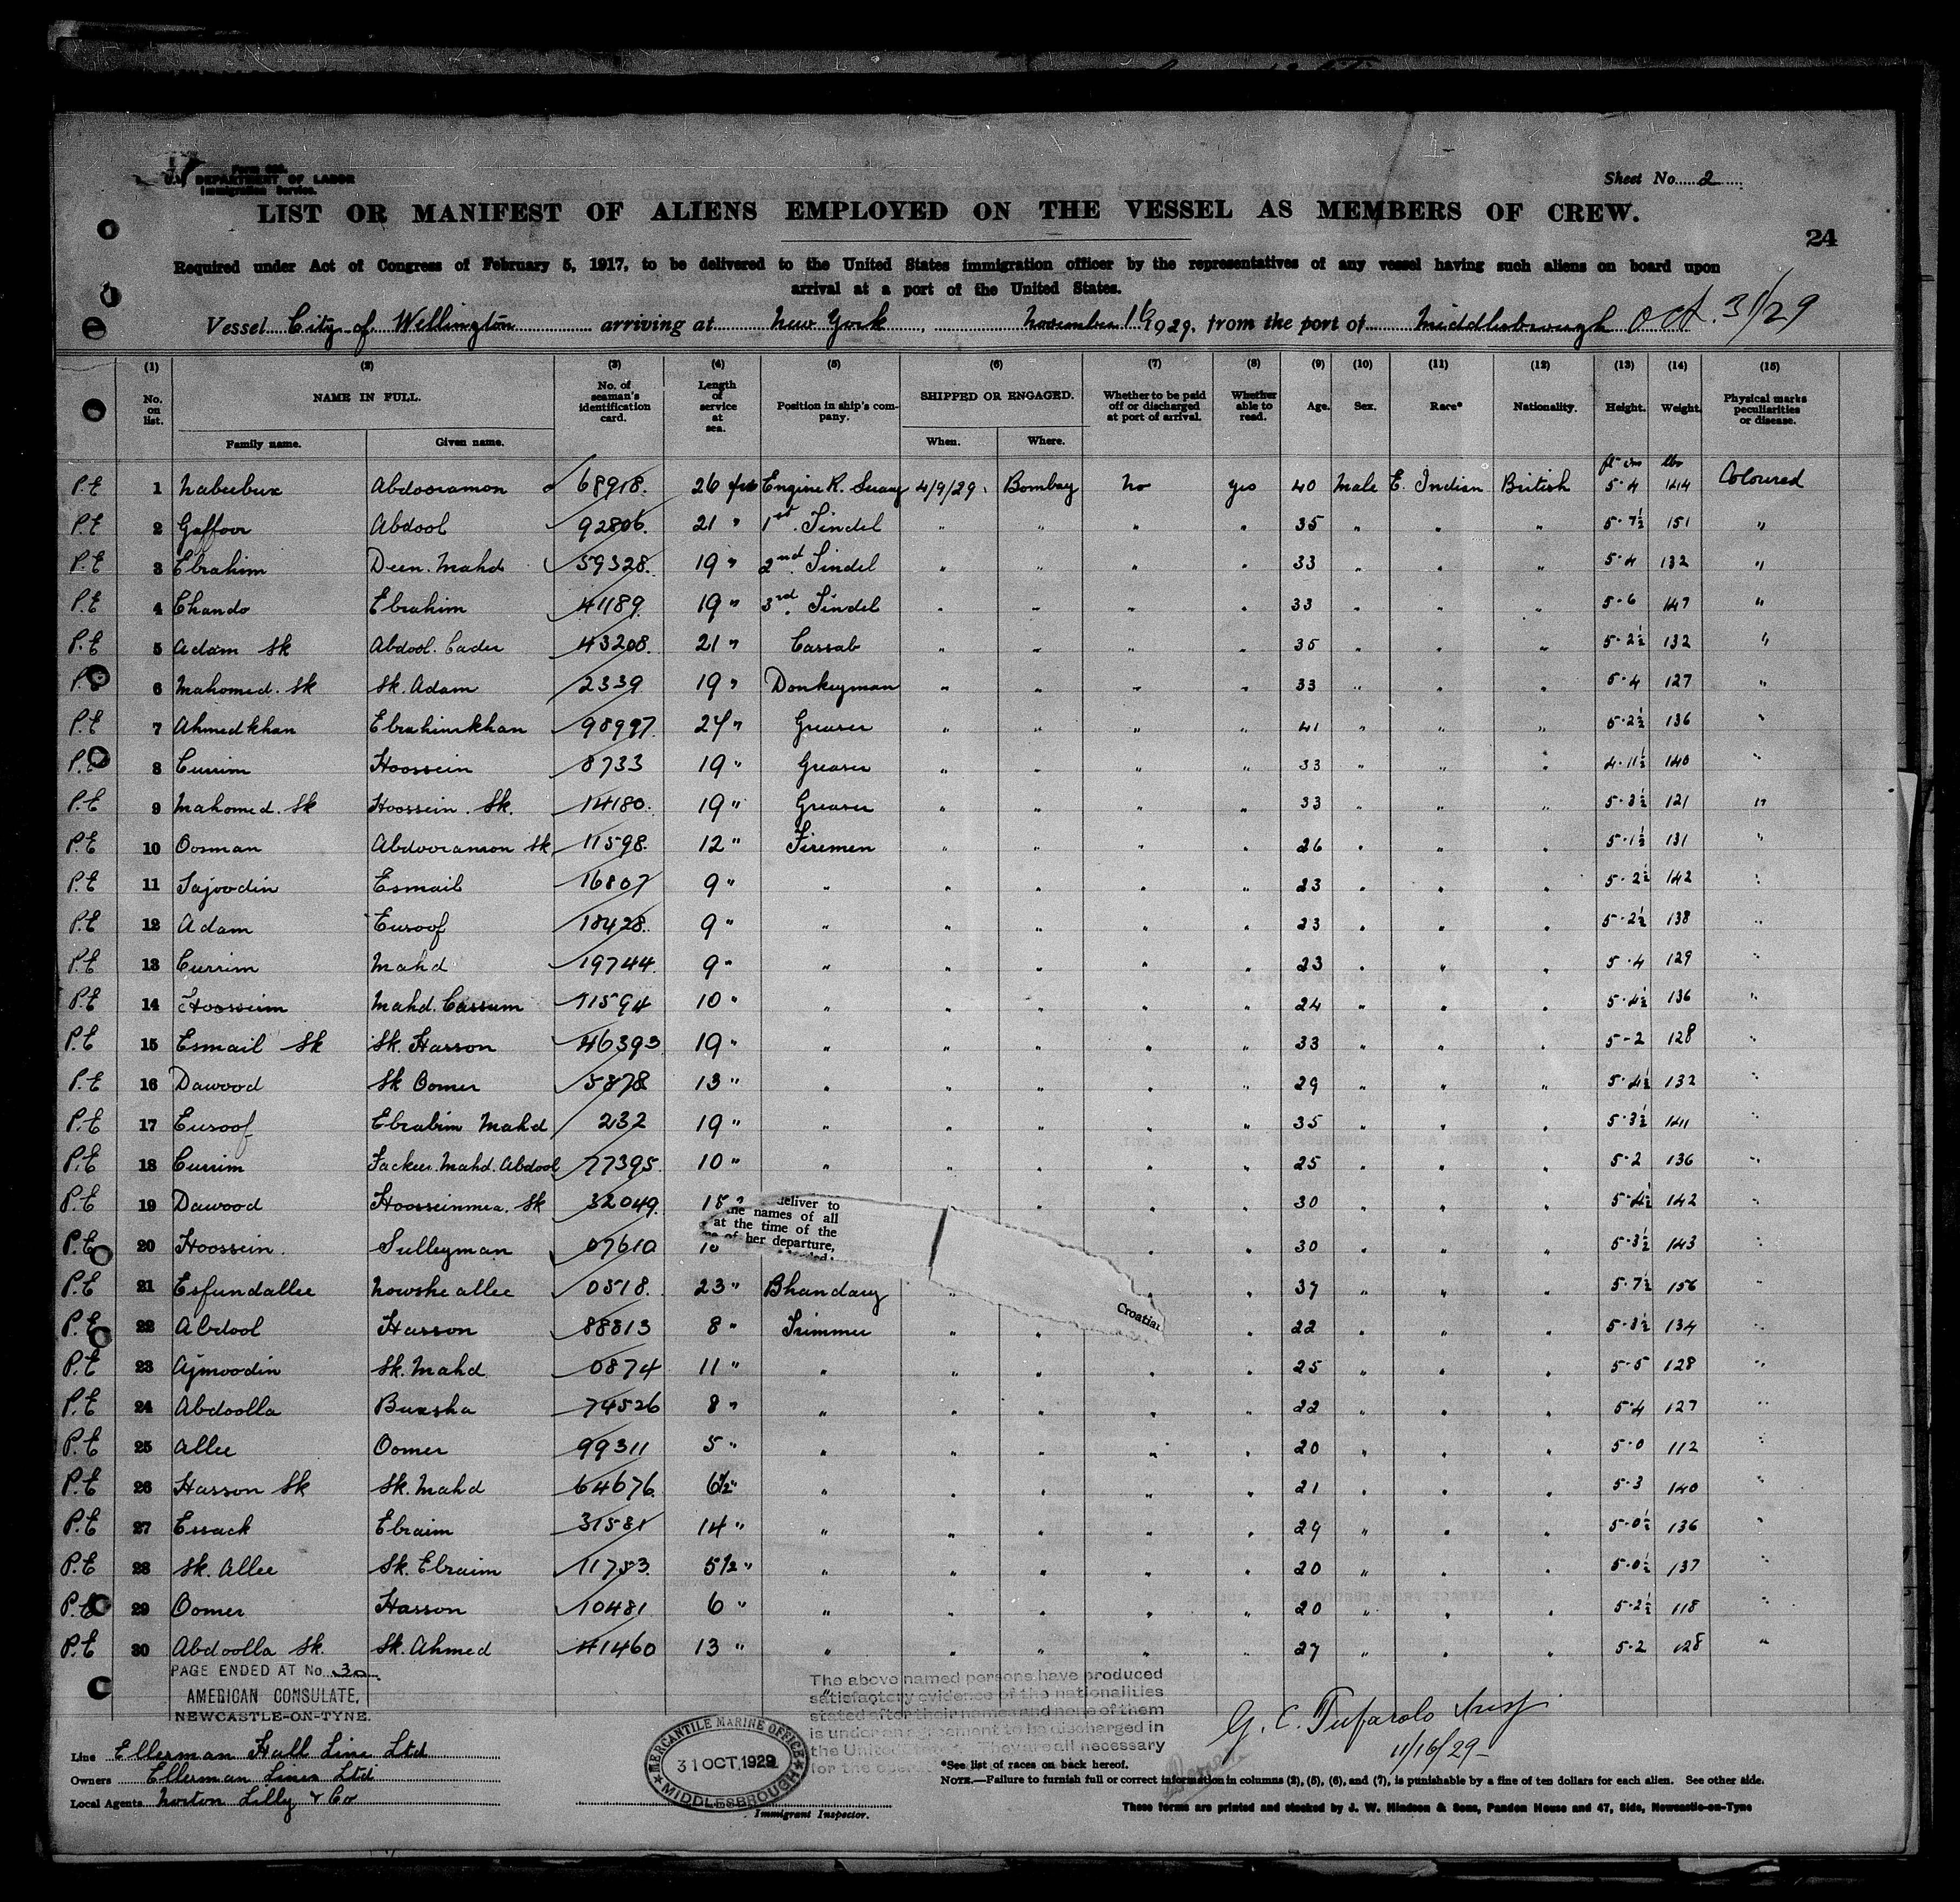 Form 680.
U.S. DEPARTMENT OF LABOR
Immigration Service.
Sheet No. 2
LIST OR MANIFEST OF ALIENS EMPLOYED ON THE VESSEL AS MEMBERS OF CREW.
24
Required under Act of Congress of February 5, 1917, to be delivered to the United States immigration officer by the representatives of any vessel having such aliens on board upon
arrival at a port of the United States.
Vessel City of Wellington arriving at New York, November 16 1929, from the port of Middlesbrough Oct. 31/29
(1) (2) (3) (4) (5) (6) (7) (8) (9) (10) (11) (12) (13) (14) (15)
No. on list. NAME IN FULL. Family name. Given name. No. of seaman's identification card. Length of service at sea. Position in ship's company. SHIPPED OR ENGAGED. When. Where. Whether to be paid off or discharged at port of arrival. Whether able to read. Age. Sex. Race* Nationality. Height. Weight. Physical marks peculiarities or disease.
ft ins lbs
P.E 1 Nabeebux Abdooramon 68918. 26 yrs Engine R. Serang 4/9/29. Bombay No yes 40 Male E. Indian British 5·4 144 Coloured
P.E 2 Gaffoor Abdool 92806. 21 " 1st. Tindel " " " " 35 " " " 5·7½ 151 "
P.E 3 Ebrahim Deen. Mahd 59328. 19 " 2nd. Tindel " " " " 33 " " " 5·4 132 "
P.E 4 Chando Ebrahim 41189. 19 " 3rd. Tindel " " " " 33 " " " 5·6 147 "
P.E 5 Adam Sk Abdool. Cader 43208. 21 " Cassab " " " " 35 " " " 5·2½ 132 "
P.E 6 Mahomed. Sk Sk. Adam 2339 19 " Donkeyman " " " " 33 " " " 5·4 127 "
P.E 7 Ahmedkhan Ebrahimkhan 98997. 27 " Greaser " " " " 41 " " " 5·2½ 136 "
P.E 8 Currim Hoossein 8733 19 " Greaser " " " " 33 " " " 4·11½ 140 "
P.E 9 Mahomed. Sk Hoossein. Sk. 14180. 19 " Greaser " " " " 33 " " " 5·3½ 121 "
P.E 10 Oosman Abdooramon Sk 11598. 12 " Firemen " " " " 26 " " " 5·1½ 131 "
P.E 11 Tajoodin Esmail 16807 9 " " " " " " 23 " " " 5·2½ 142 "
P.E 12 Adam Eusoof 18428. 9 " " " " " " 23 " " " 5·2½ 138 "
P.E 13 Currim Mahd 19744. 9 " " " " " " 23 " " " 5·4 129 "
P.E 14 Hoosseim Mahd. Cassum 11594 10 " " " " " " 24 " " " 5·4½ 136 "
P.E 15 Esmail Sk Sk. Hasson 46393 19 " " " " " " 33 " " " 5-2 128 "
P.E 16 Dawood Sk Oomer 5878 13 " " " " " " 29 " " " 5·4½ 132 "
P.E 17 Eusoof Ebrahim Mahd 232 19 " " " " " " 35 " " " 5·3½ 141 "
P.E 18 Currim Fackeer. Mahd. Abdool 77395. 10 " " " " " " 25 " " " 5·2 136 "
P.E 19 Dawood Hoosseinmea. Sk 32049. " " 30 " " " 5·4½ 142 "
P.E 20 Hoossein. Sulleyman 07610 " " 30 " " " 5·3½ 143 "
P.E 21 Esfundallee Nowsheallee 0518. 23 " Bhandary " " " 37 " " " 5·7½ 156 "
P.E 22 Abdool Hasson 88813 8 " Trimmer " " " 22 " " " 5·3½ 134 "
P.E 23 Ajmoodin Sk. Mahd. 0874 11 " " " " " " 25 " " " 5·5 128 "
P.E 24 Abdoolla Buxsha 74526 8 " " " " " " 22 " " " 5·4 127 "
P.E 25 Allee Oomer 99311 5 " " " " " " 20 " " " 5·0 112 "
P.E 26 Hasson Sk Sk. Mahd 64676. 6½ " " " " " " 21 " " " 5·3 140 "
P.E 27 Essack Ebraim 31581 14 " " " " " " 29 " " " 5·0½ 136 "
P.E 28 Sk. Allee Sk. Ebraim 11753. 5½ " " " " " " 20 " " " 5·0½ 137 "
P.E 29 Oomer Hasson 10481 6 " " " " " " 20 " " " 5·2½ 118 "
P.E 30 Abdoolla Sk. Sk. Ahmed 41460 13 " " " " " " 27 " " " 5·2 128 "
deliver to
the names of all
at the time of the
of her departure,
Croatian
PAGE ENDED AT No. 30
AMERICAN CONSULATE,
NEWCASTLE-ON-TYNE.
The above named persons have produced
satisfactory evidence of the nationalities
stated after their name and none of them
is under an agreement to be discharged in
the United States. They are all necessary
for the
G. C. Tufarolo Insp
11/16/29
Line Ellerman Hall Line Ltd
Owners Ellerman Lines Ltd
Local Agents Norton Lilly & Co
MERCANTILE MARINE OFFICE
31 OCT. 1929
MIDDLESBROUGH
Immigrant Inspector.
*See list of races on back hereof.
NOTE.—Failure to furnish full or correct information in columns (2), (5), (6), and (7), is punishable by a fine of ten dollars for each alien. See other side.
These forms are printed and stocked by J. W. Hindson & Sons, Pandon House and 47, Side, Newcastle-on-Tyne